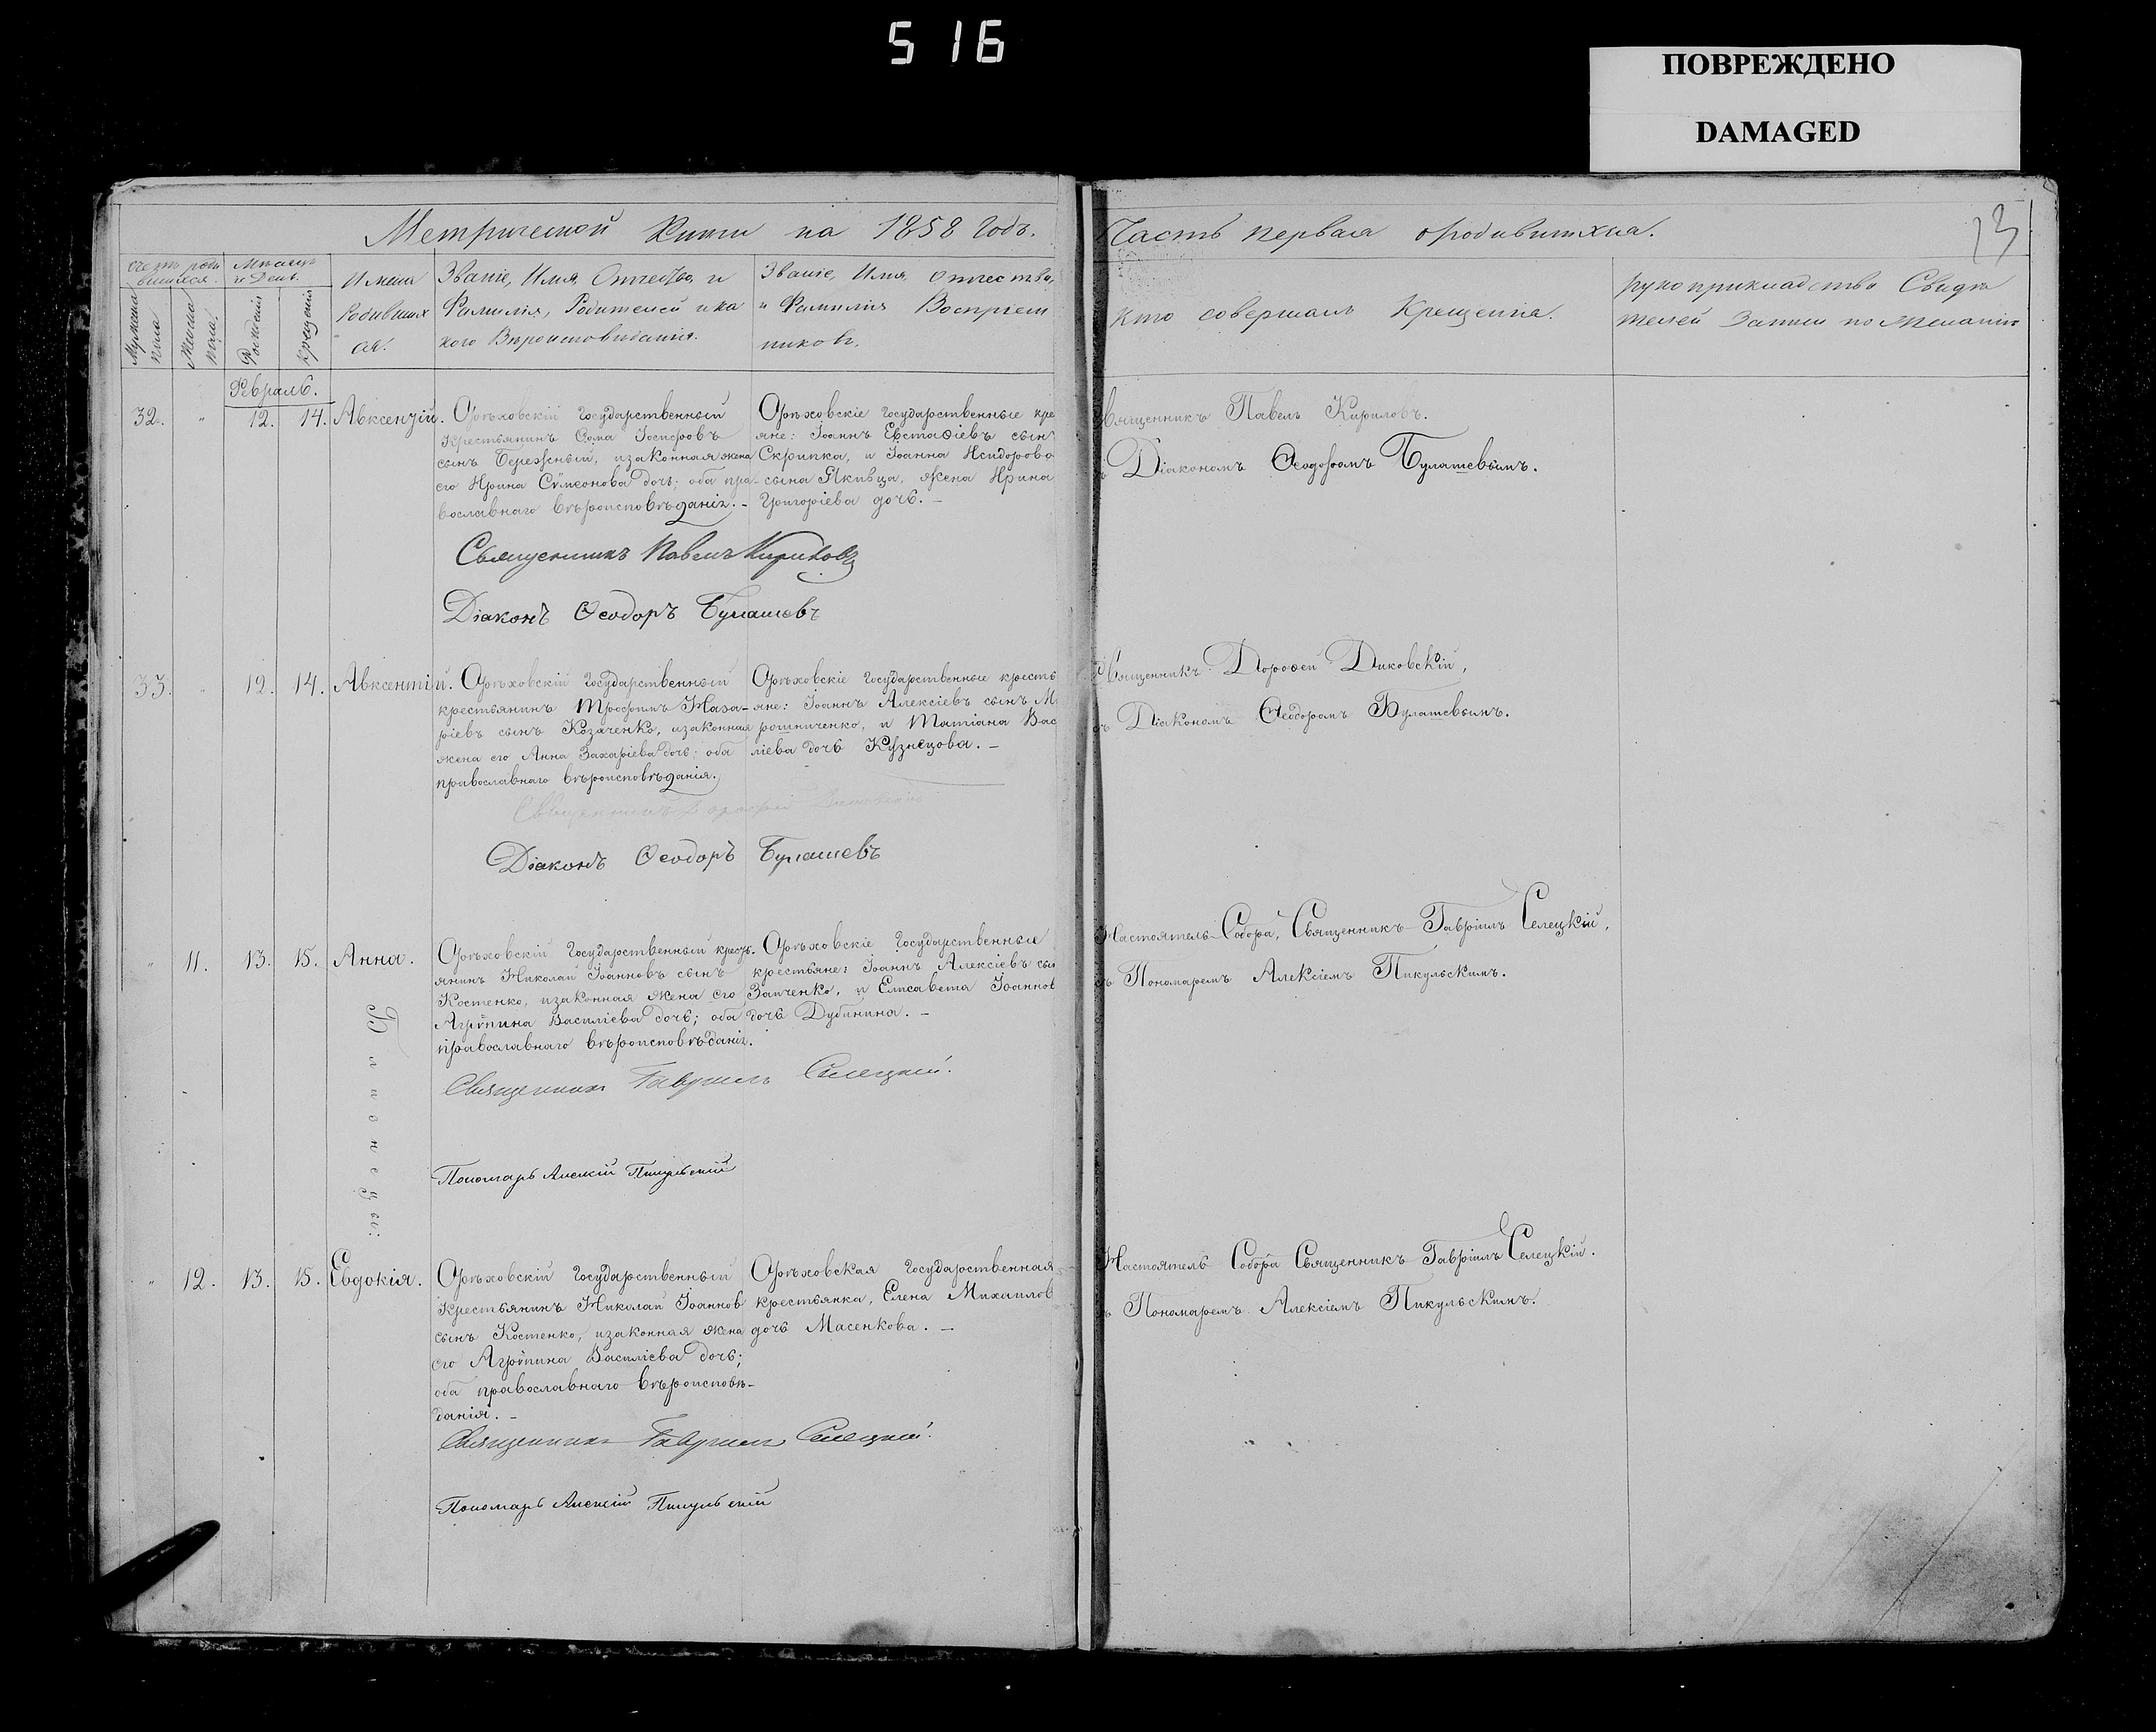 5 16
ПОВРЕЖДЕНО
DAMAGED
Метрической Книги на 1858 Годъ.
Часть первая о родившихся.
13
Счетъ роди
вшихся.
Мужеска
пола
Женска
пола.
Мѣсяцъ
и День.
Рожденія
Крещенія
Имена
Родивших
ся.
Званіе, Имя, Отчество, и
Фамилія, Родителей и ка
кого Вѣроисповѣданія.
Званіе, Имя, Отчество,
и Фамилія Воспріем
никовъ.
Кто совершалъ Крещеніе.
рукоприкладство Свидѣ
телей Записи по Желанію
Февраль.
32. " 12. 14. Авксентій.
Орѣховскій Государственный
крестьянинъ Ѳома Іосифовъ
сынъ Бережный, и законная жена
его Ирина Сѵмеонова дочь; оба пра-
вославнаго вѣроисповѣданія. -
Орѣховскіе Государственные кре
яне: Іоаннъ Евстаѳіевъ сын
Скрипка, и Іоанна Исидорово
сына Якивца, жена Ирина
Григоріева дочь. -
вященникъ Павелъ Кириловъ.
Діакономъ Ѳеодоромъ Булашевымъ.
Священникъ Павелъ Кириловъ
Діаконъ Ѳеодоръ Булашевъ
33. " 12. 14. Авксентій.
Орѣховскій Государственный
крестьянинъ Трофимъ Наза-
ріевъ сынъ Козаченко, и законная
жена его Анна Захаріева дочь; оба
православнаго вѣроисповѣданія.
Орѣховскіе Государственные кресть
яне: Іоаннъ Алексіевъ сынъ М
рошниченко, и Татіана Вас
ліева дочь Кузнецова. -
Священникъ Дороѳей Диковскій,
Діакономъ Ѳеодоромъ Булашевымъ.
Священникъ Дорофей Диковскій
Діаконъ Ѳеодоръ Булашевъ
" 11. 13. 15. Анна.
Орѣховскій Государственный кресть-
янинъ Николай Іоанновъ сынъ
Костенко, и законная жена его
Агрипина Василіева дочь; оба
православнаго вѣроисповѣданія.
Орѣховскіе Государственные
крестьяне: Іоаннъ Алексіевъ сы
Заиченко, и Елисавета Іоаннов
дочь Дубинина. -
Настоятель Собора, Священникъ Гавріилъ Селецкій,
съ Пономаремъ Алексіемъ Пикульскимъ.
Близнецы:
Священникъ Гавріилъ Селецкій.
Пономарь Алексій Пикульскій
" 12. 13. 15. Евдокія.
Орѣховскій Государственный
крестьянинъ Николай Іоаннов
сынъ Костенко, и законная жена
его Агрипина Василіева дочь;
оба православнаго вѣроисповѣ-
данія. -
Орѣховская Государственная
крестьянка, Елена Михаилов
дочь Масенкова. -
Настоятель Собора Священникъ Гавріилъ Селецкій.
ъ Пономаремъ Алексіемъ Пикульскимъ.
Священникъ Гавріилъ Селецкій.
Пономарь Алексій Пикульскій